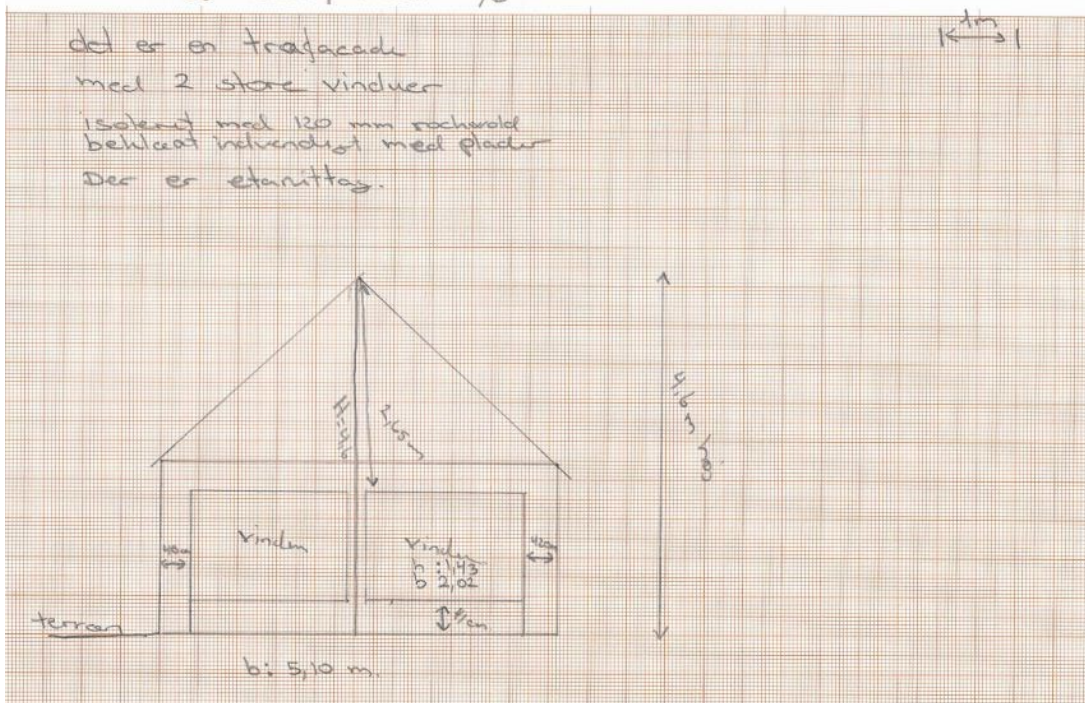 1m
det er en træfacade
med 2 store vinduer
isoleret med 120 mm rockwold
beklæat indvendigt med plader
Der er etanittag.
H=4,6
2,65 m
4,6 m høj
vindu
vindu
h : 1,43
b 2,02
40cm
42cm
41cm
terræn
b: 5,10 m.